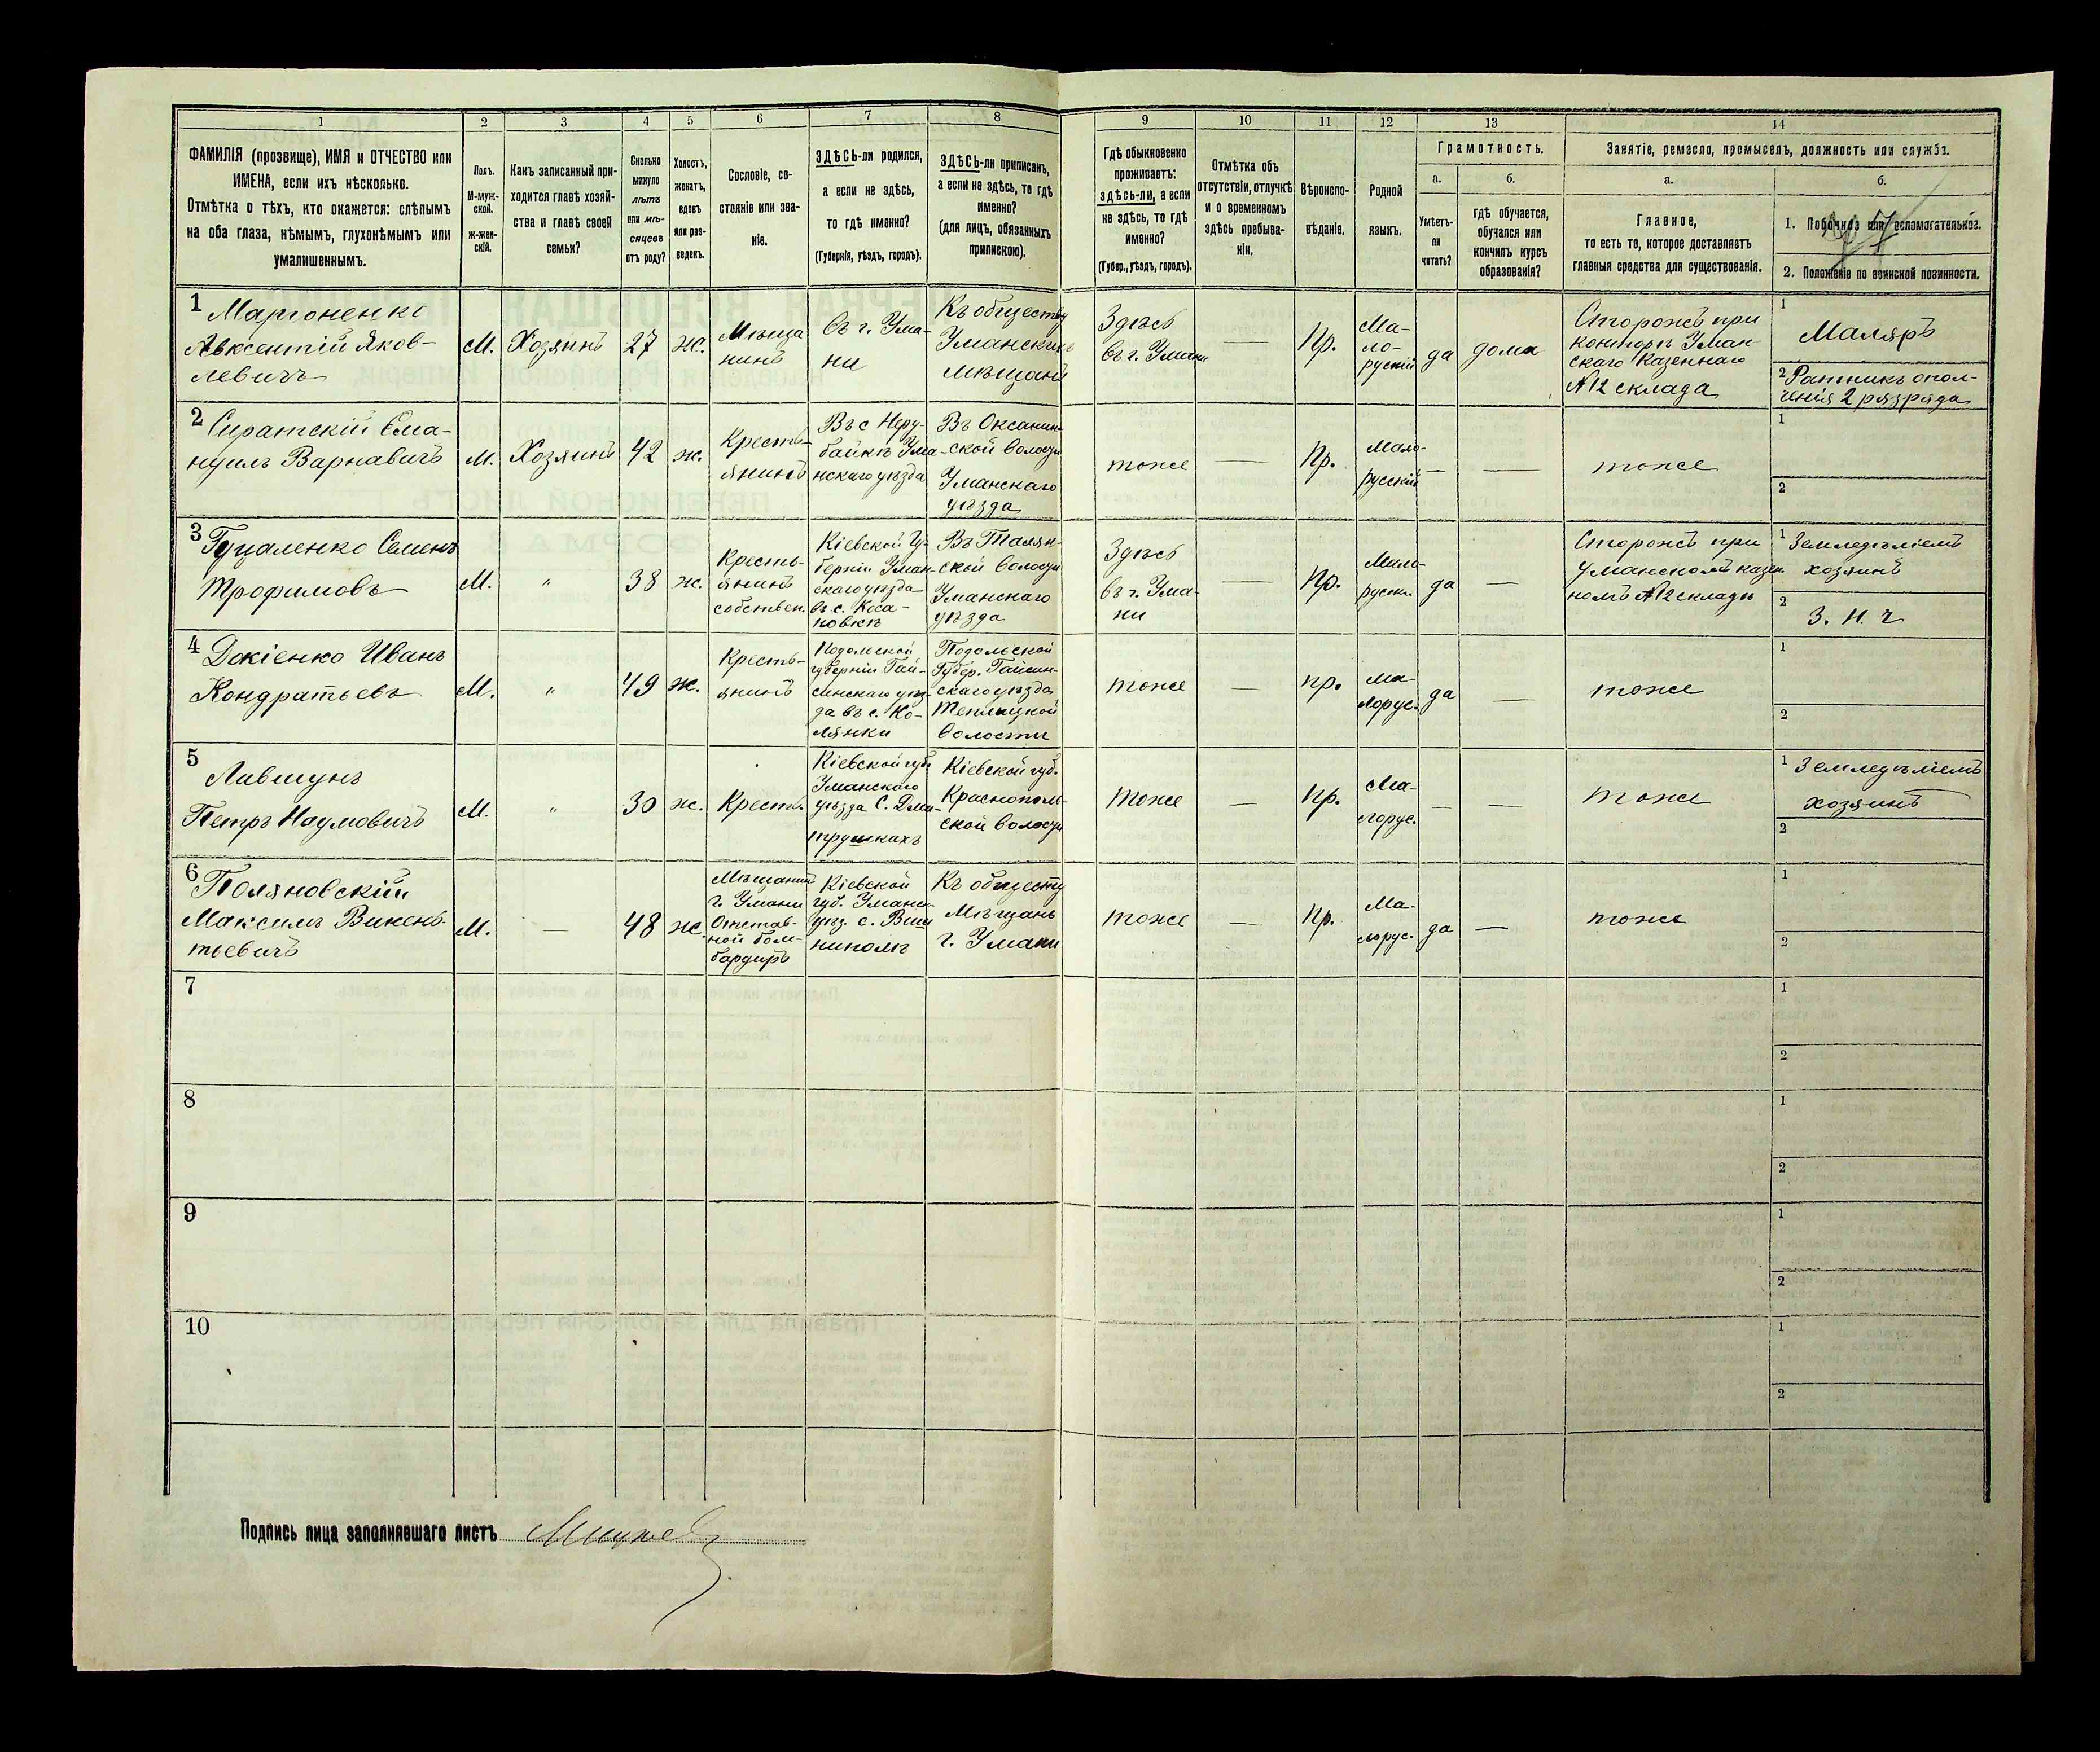 1 2 3 4 5 6 7 8 9 10 11 12 13 14
ФАМИЛІЯ (прозвище), ИМЯ и ОТЧЕСТВО или
ИМЕНА, если ихъ нѣсколько.
Отмѣтка о тѣхъ, кто окажется: слѣпымъ
на оба глаза, нѣмымъ, глухонѣмымъ или
умалишеннымъ.
Полъ.
М-муж-
ской.
Ж-жен-
скій.
Какъ записанный при-
ходится главѣ хозяй-
ства и главѣ своей
семьи?
Сколько
минуло
лѣтъ
или мѣ-
сяцевъ
отъ роду?
Холостъ,
женатъ,
вдовъ
или раз-
веденъ.
Сословіе, со-
стояніе или зва-
ніе.
ЗДѢСЬ-ли родился,
а если не здѣсь,
то гдѣ именно?
(Губернія, уѣздъ, городъ).
ЗДѢСЬ-ли приписанъ,
а если не здѣсь, то гдѣ
именно?
(для лицъ, обязанныхъ
припискою).
Гдѣ обыкновенно
проживаетъ:
здѣсь-ли, а если
не здѣсь, то гдѣ
именно?
(Губер., уѣздъ, городъ).
Отмѣтка объ
отсутствіи, отлучкѣ
и о временномъ
здѣсь пребыва-
ніи.
Вѣроиспо-
вѣданіе.
Родной
языкъ.
Грамотность.
а.
Умѣетъ-
ли
читать?
б.
гдѣ обучается,
обучался или
кончилъ курсъ
образованія?
Занятіе, ремесло, промыселъ, должность или служба.
а.
Главное,
то есть то, которое доставляетъ
главныя средства для существованія.
б.
1. Побочное или вспомогательное.
2. Положеніе по воинской повинности.
1
Авксентій Яков-
левичъ
М.
Хозяинъ
27
ж.
Мѣща
нинъ
въ г. Ума-
ни
Къ обществу
Уманскихъ
мѣщанъ
Здѣсь
въ г. Умани
—
Пр.
Ма-
ло-
рускій
да
дома
Сторожъ при
конторѣ Уман-
скаго Казеннаго
№12 склада
1
Маляръ
2 Ратникъ опол-
ченія 2 разряда
2
Ема-
нуилъ Варнавичъ
М.
Хозяинъ
42
ж.
Кресть-
янинъ
Въ с Неру-
байкѣ Ума-
нскаго уѣзда
Въ Оксанин-
ской волости
Уманскаго
уѣзда
тоже
—
Пр.
Мало-
русскій
—
—
тоже
1
2
3 Гуцаленко Семенъ
Трофимовъ
М.
"
38
ж.
Кресть-
янинъ
собствен.
Кіевской Гу-
берніи Уман-
скаго уѣзда
въ с. Коса-
новкѣ
Въ Талян-
ской волости
Уманскаго
уѣзда
Здѣсь
въ г. Ума-
ни
—
Пр.
Мало-
руск.
да
—
Сторожъ при
Уманскомъ казен.
номъ №12 складѣ
1 Земледѣліемъ
хозяинъ
2
З. Н. Ч
4 Докіенко Иванъ
Кондратьевъ
М.
"
49
ж.
Кресть-
янинъ
Подольской
губерніи Гай-
синскаго уѣз-
да въ с. Ко-
лянки
Подольской
Губер. Гайсин-
скаго уѣзда
Теплицкой
волости
тоже
—
пр.
Ма-
лорус.
да
—
тоже
1
2
5
Лившунъ
Петръ Наумовичъ
М.
"
30
ж.
Крест.
Кіевской губ.
Уманскаго
уѣзда С. Дми-
трушкахъ
Кіевской губ.
Краснополь-
ской волости
тоже
—
пр.
Ма-
лорус.
—
—
тоже
1 Земледѣліемъ
хозяинъ
2
6
Поляновскій
Максимъ Викень-
тьевичъ
М.
—
48
ж.
Мѣщанинъ
г. Умани
Отстав-
ной бом-
бардиръ
Кіевской
губ. Уманск
уѣз. с. Виш
нополѣ
Къ обществу
Мѣщанъ
г. Умани
тоже
—
Пр.
Ма-
лорус.
да
—
тоже
1
2
7
1
2
8
1
2
9
1
2
10
1
2
Подпись лица заполнявшаго листъ